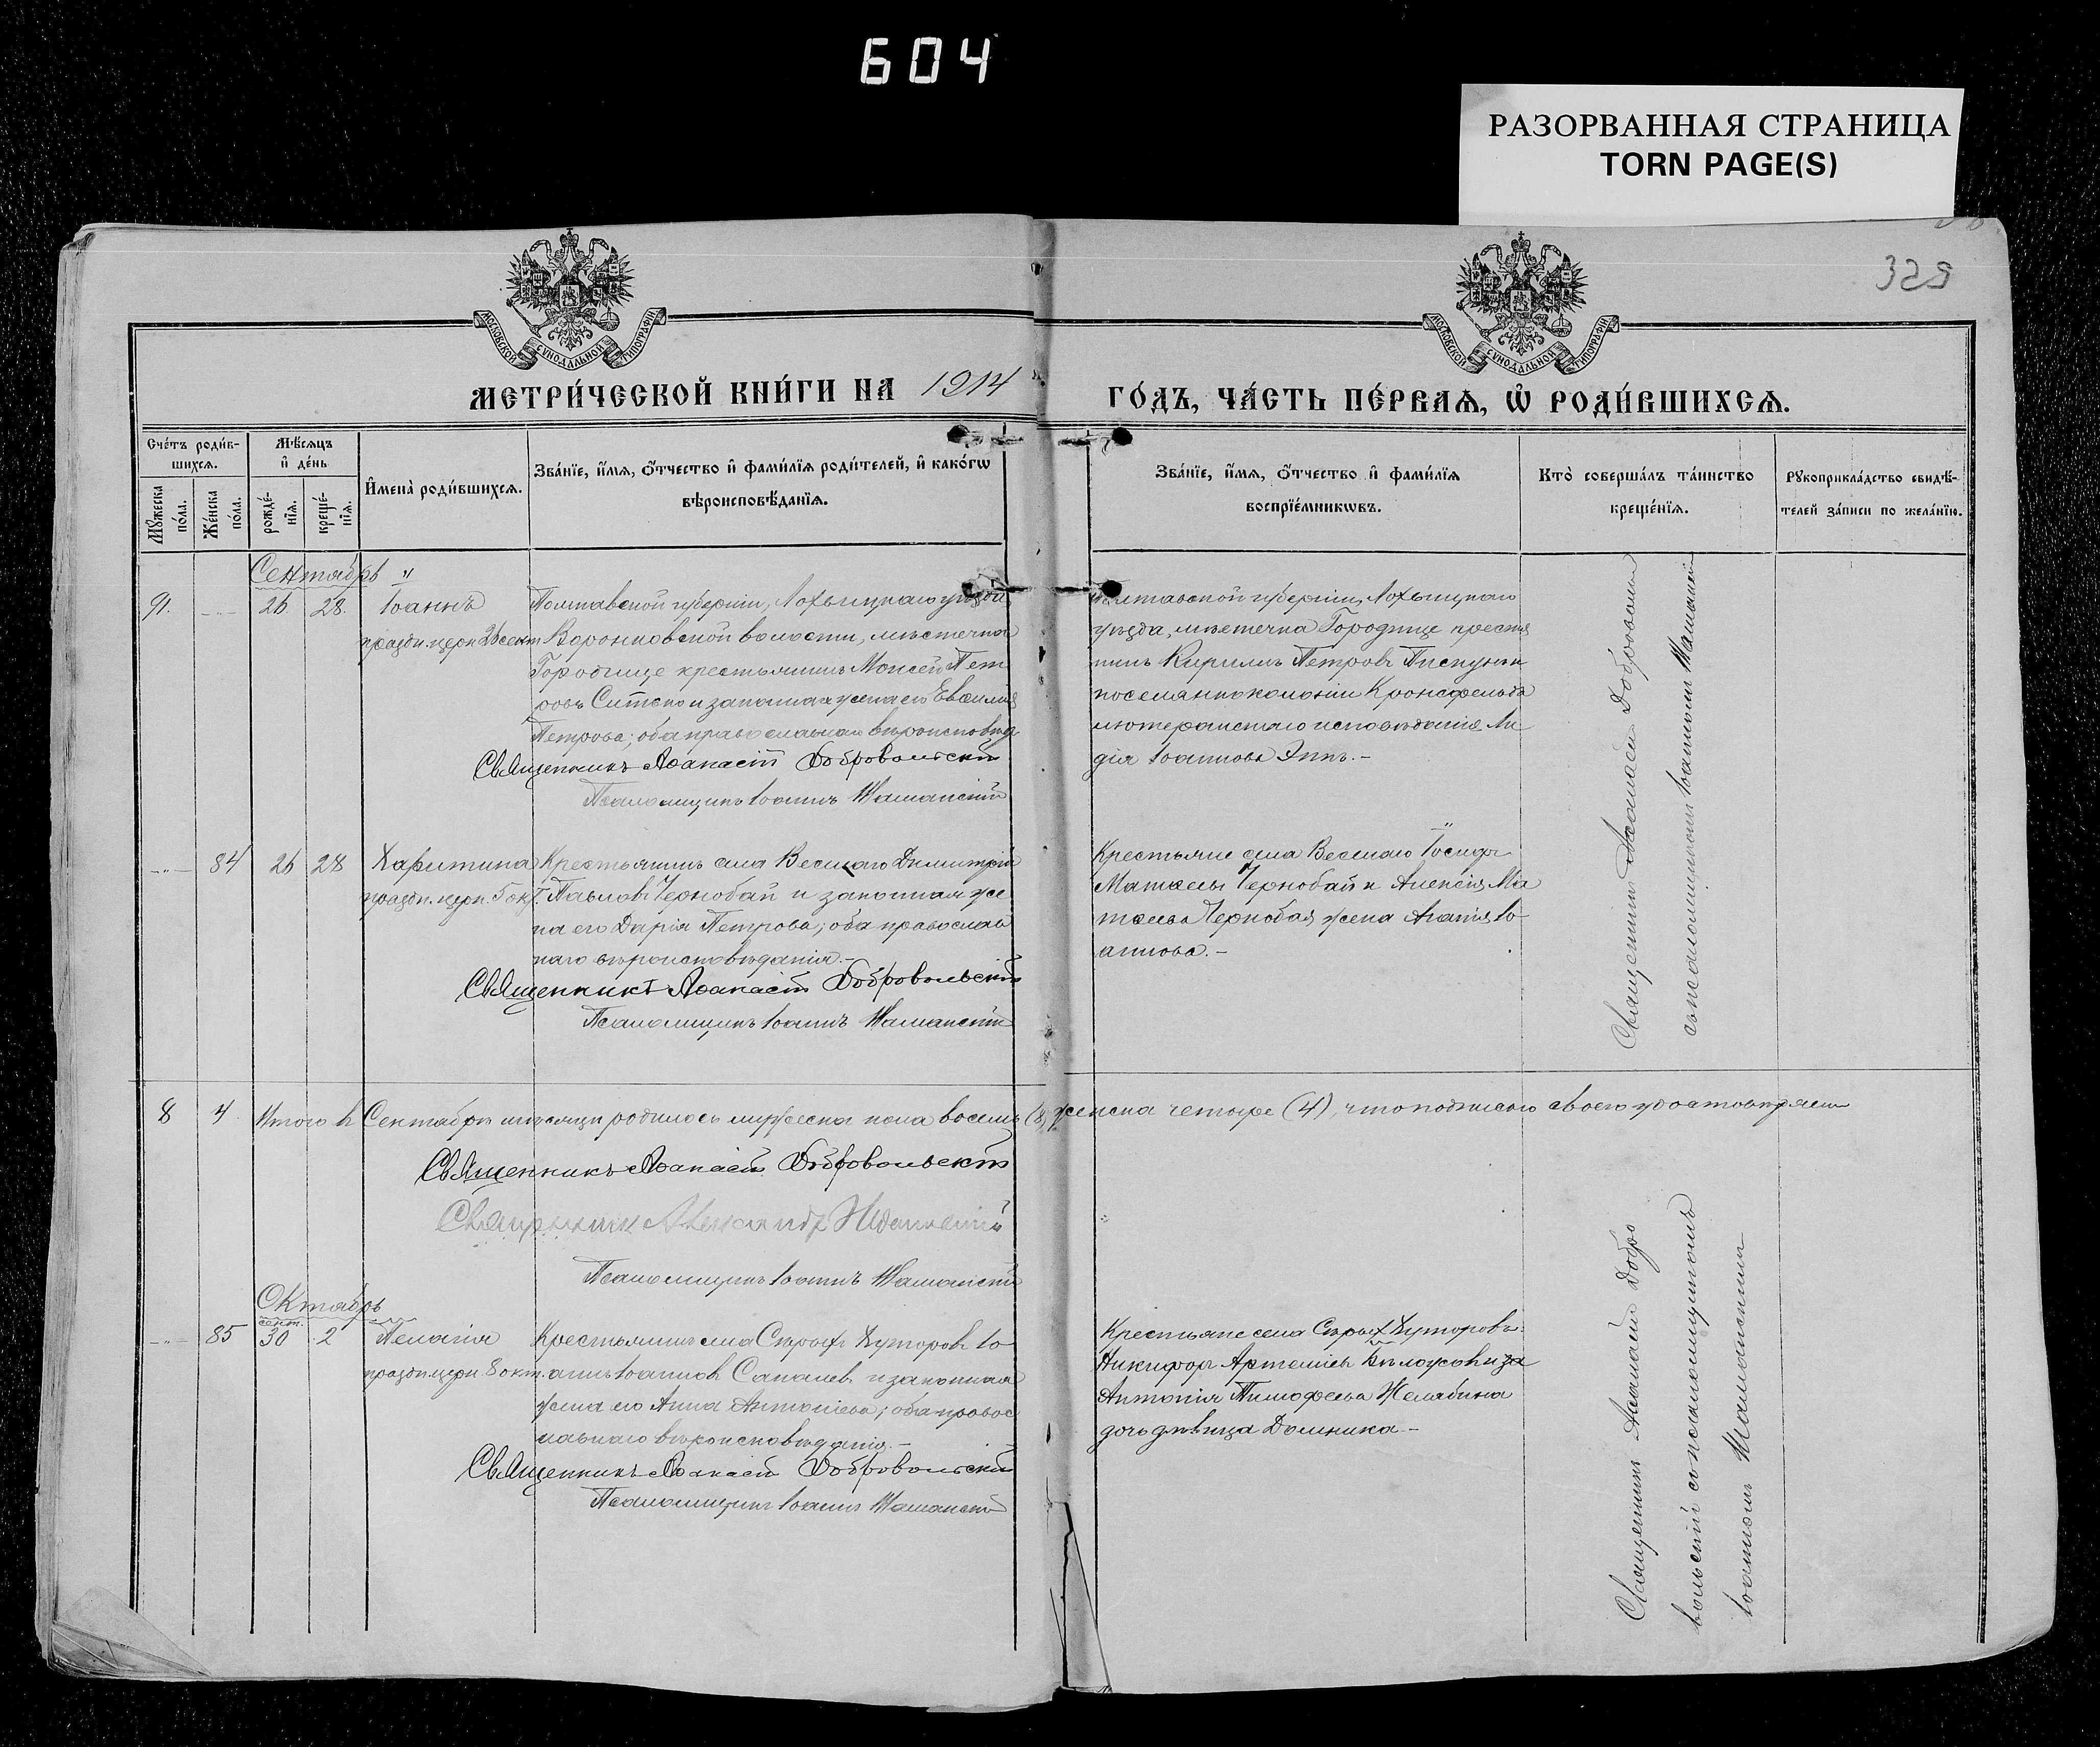 604
РАЗОРВАННАЯ СТРАНИЦА
TORN PAGE(S)
325
МОСКОВСКОЙ СѴНОДАЛЬНОЙ ТИПОГРАФІИ
МОСКОВСКОЙ СѴНОДАЛЬНОЙ ТИПОГРАФІИ
МЕТРИ́ЧЕСКОЙ КНИ́ГИ НА 1914
ГО́ДЪ, ЧА́СТЬ ПЕ́РВАѦ, Ѡ҆ РОДИ́ВШИХСѦ.
Сче́тъ роди́в-
шихсѧ.
Мѣ́сѧцъ
и҆ де́нь
И҆мена̀ роди́вшихсѧ.
Зва́нїе, и҆́мѧ, ѻ҆́тчество и҆ фами́лїѧ роди́телей, и҆ како́гѡ
вѣроисповѣ́данїѧ.
Мꙋ́жеска
по́ла.
Же́нска
по́ла.
рожде́-
нїѧ.
креще́-
нїѧ.
Зва́нїе, и҆́мѧ, ѻ҆́тчество и҆ фами́лїѧ
воспрїе́мникѡвъ.
Кто̀ соверша́лъ та́инство
креще́нїѧ.
Рꙋкоприкла́дство свидѣ́-
телей за́писи по жела́нїю.
Сентябрь "
91. 26 28. Іоаннъ
праздн. церк. 26 сент
Полтавской губерніи, Лохвицкаго уѣзда
Воронковской волости, мѣстечка
Городище крестьянинъ Моисей Пет
ровъ и законная жена его Евѳимія
Петрова; оба православнаго вѣроисповѣд
Священникъ Аѳанасій Добровольскій
Псаломщикъ Іоаннъ Шаманскій
Полтавской губерніи, Лохвицкаго
уѣзда, мѣстечка Городище крестья
нинъ Кириллъ Петровъ
колоніи Кронсфельдъ
лютеранскаго исповѣданія Ли
дія Іоаннова Эппъ.-
Священникъ Аѳанасій Добровольскій
съ псаломщикомъ Іоанномъ Шаманскимъ
84 26 28 Харитина
праздн. церк. 5 окт.
Крестьянинъ села Веселаго Димитрій
Павловъ Чернобай и законная же
на его Дарія Петрова; оба православ
наго вѣроисповѣданія.-
Священникъ Аѳанасій Добровольскій
Псаломщикъ Іоаннъ Шаманскій
Крестьяне села Веселаго Іосифъ
Матвеевъ Чернобай и Алексія Ма
твеева Чернобая жена Агафія Іо-
аннова.-
8 4 Итого въ Сентябрѣ мѣсяцѣ родилось мужеска пола восемь (8) женска четыре (4), что подписью своею удостовѣряемъ
Священникъ Аѳанасій Добровольскій
Священникъ Александръ
Псаломщикъ Іоаннъ Шаманскій
Октябрь
85 сент. 30 2 Пелагія
праздн. церк 8 окт.
Крестьянинъ села Сѣрыхъ Хуторовъ Іо-
аннъ Іоанновъ и законная
жена его Анна Антоніева; оба правос
лавнаго вѣроисповѣданія.-
Священникъ Аѳанасій Добровольскій
Псаломщикъ Іоаннъ Шаманскій
Крестьяне села Сѣрыхъ Хуторовъ:
Никифоръ Артеміевъ
Антонія Тимофеева Желябина
дочь дѣвица Домника -
Священникъ Аѳанасій Добро
вольскій съ псаломщикомъ
Іоанномъ Шаманскимъ